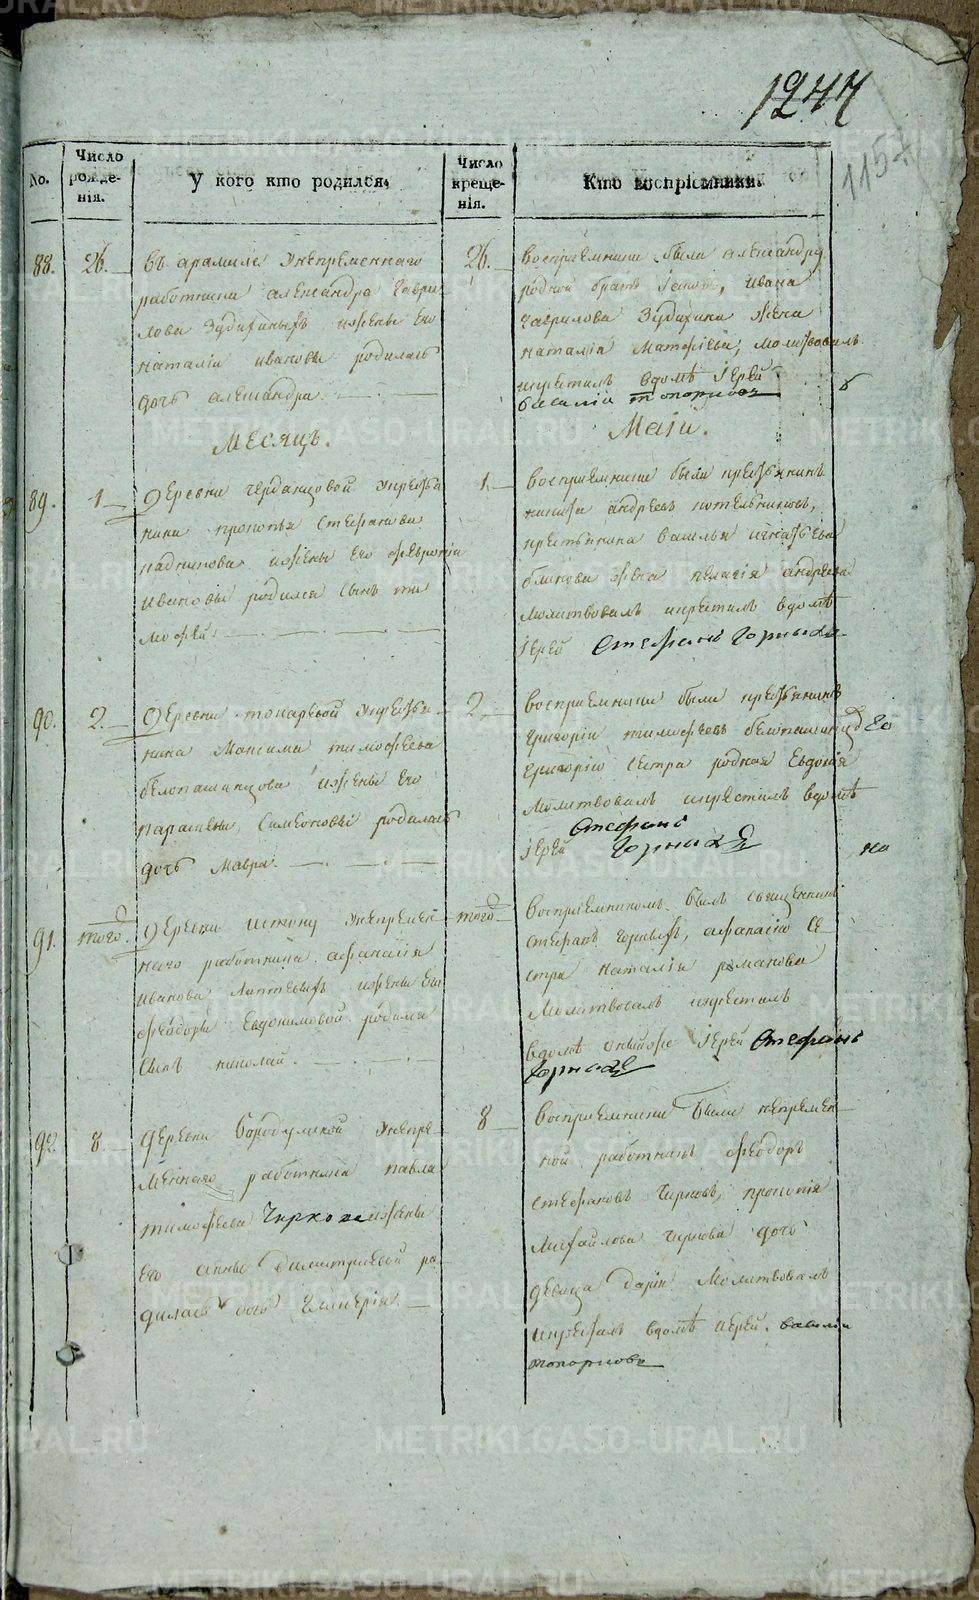 1247
115
No.
Число рожде-нія.
У кого кто родился.
Число креще-нія.
Кто воспріемники.
88.
26.
въ арамиле Унепременнаго
работника александра Гаври
лова Зудихиныхъ ижены его
наталiи ивановы родилась
дочь александра.
26.
воспріемники были александра
родной братъ
ивана
гаврилова Зудихина жена
наталіа Матфіева, молитвовалъ
икрестилъ вдомѣ Іерей
василіи топорковъ
Месяцъ.
Маіи.
89.
1
Деревни черданцовой укрестья
нина прокопья Стефанова
надникова ижены его Февроніи
Ивановы родился сынъ ти
мофей.
1.
воспріемники были крестьянинъ
андреевъ котельниковъ,
крестьянина василья игнатьева
блинова жена пелагія андреева
молитвовалъ икрестилъ вдомѣ
Іерей Стефанъ Горныхъ
90.
2
Деревни токаревой укрестья
нина Максима тимофеева
белопашинцова ижены его
параскевы Симеоновы родилась
дочь мавра.
2.
воспріемники были крестьянинъ
григоріи тимофеевъ белопашинцо
григорію сестра родная Евдокія
молитвовалъ икрестилъ вдомѣ
Іерей Стефанъ
Горныхъ
91.
того
Деревни истоку Унепремен
наго работника афанасія
иванова Лаптевыхъ ижены его
феодоры Евдокимовой родился
сынъ николай.
того
воспріемникомъ былъ священникъ
стефанъ горныхъ, афанасію се
стра наталія романова
молитвовалъ икрестилъ
вдомѣ Іерей Стефанъ
Горныхъ
92.
8.
Деревни Бородулиной Унепре
меннаго работника павла
тимофеева Чиркова ижены
его анны димитріевой ро
дилась дочь Гликерія.
8
воспріемники были непремен
ной работникъ феодоръ
стефановъ Чирковъ, прокопія
михайлова чиркова дочь
девица дарія молитвовалъ
икрестилъ вдомѣ иерей василіи
топорковъ
METRIKI.GASO-URAL.RU